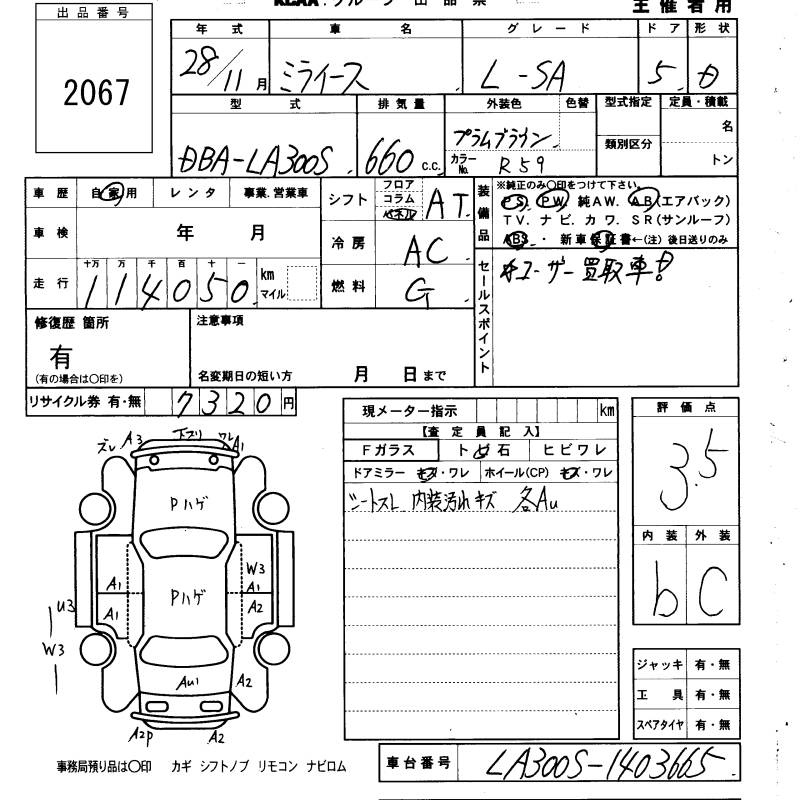 KCAA. グループ 出品票 主催者用
出品番号
2067
年式 車名 グレード ドア 形状
28/11月 ミライース L-SA 5. D
型式 排気量 外装色 色替 型式指定 定員・積載
DBA-LA300S. 660 c.c. プラムブラウン. 類別区分 名
カラーNo. R59 トン
車歴 自家用 レンタ 事業.営業車
シフト フロア コラム パネル AT.
装備品 ※純正のみ〇印をつけて下さい。
PS. PW. 純AW. AB(エアバック)
TV. ナビ. カワ. SR(サンルーフ)
ABS.・新車保証書←(注)後日送りのみ
車検 年 月
冷房 AC
走行 十万 万 千 百 十 一
114050. km マイル
燃料 G.
セールスポイント
ユーザー買取車!
修復歴 箇所
有
(有の場合は〇印を)
注意事項
名変期日の短い方 月 日まで
リサイクル券 有・無 7320円
現メーター指示 km
【査定員記入】
Fガラス ト ビ 石 ヒビワレ
ドアミラー キズ・ワレ ホイール(CP) キズ・ワレ
シートスレ 内装汚れキズ 各Au
評価点
3.5
内装 外装
b C
ズレ A3 下ズリ ワレ A1
Pハゲ
W3
A1 A1
Pハゲ
U3 A1 A2
W3
Au1 A2
A2P A2
ジャッキ 有・無
工具 有・無
スペアタイヤ 有・無
事務局預り品は〇印 カギ シフトノブ リモコン ナビロム
車台番号 LA300S-1403665